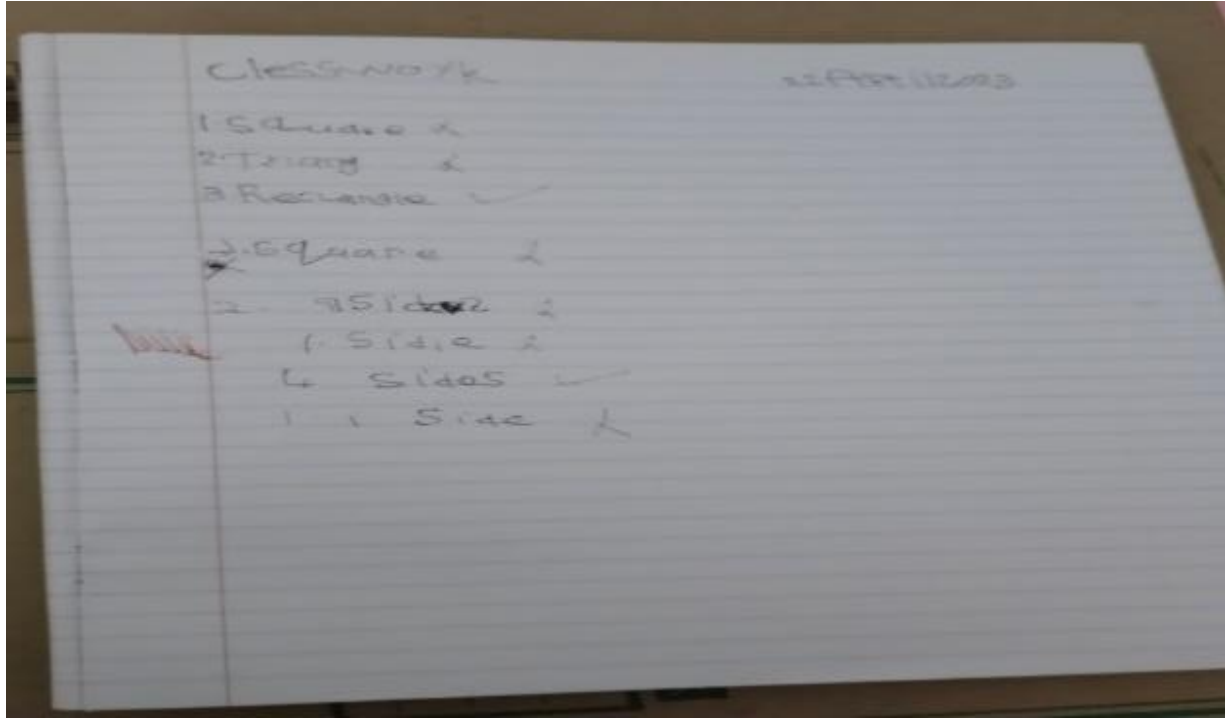 Classwork
1 Square
2. Triang
3 Rectangle
2. Square
2. 9 Sides
1. Side
4 Sides
1 1 Side